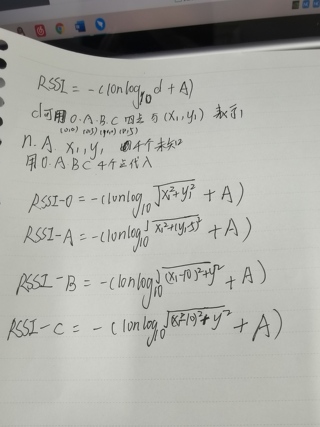 RSSI = -(10nlog₁₀ d + A)
d可用 O.A.B.C 四点与(x₁,y₁) 表示
n. A. x₁, y₁ 4个未知
用O.A.B C 4个点代入
RSSI-O = -(10nlog₁₀ √x₁²+y₁² + A)
RSSI-A = -(10nlog₁₀ √x₁²+(y₁-5)² + A)
RSSI-B = -(10nlog₁₀ √(x₁-10)²+y² + A)
RSSI-C = -(10nlog₁₀ √(x²-10)²+y² + A)